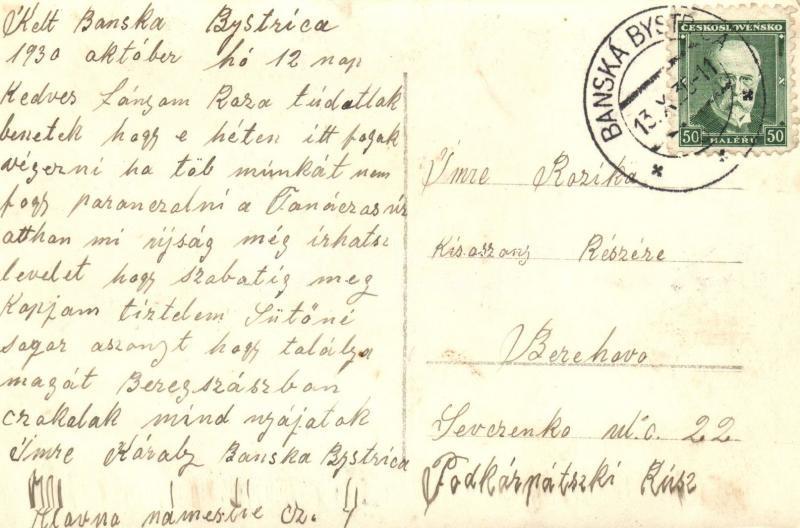 Kelt Banska Bystrica
1930 október hó 12 nap
Kedves Lányam Roza tudatlak
benetek hogy e héten itt fogok
végezni ha töb munkát nem
fogy paranczolni a Tanáczos úr
otthon mi újság még irhatsz
levelet hogy szabatig meg
kapjam tiztelem Sütőné
sogor aszonyt hogy találja
magát Beregszászban
czokolak mind nyájatok
Imre Károly Banska Bystrica
Hlavna námestie cz. 4
BANSKÁ BYSTRICA
13.X.30-11
ČESKOSLOVENSKO
50 HALÉŘŮ 50
Imre Rozika
Kisaszony Részére
Berehovo
Sevczenko ul. c. 22
Podkárpátszki Rúsz